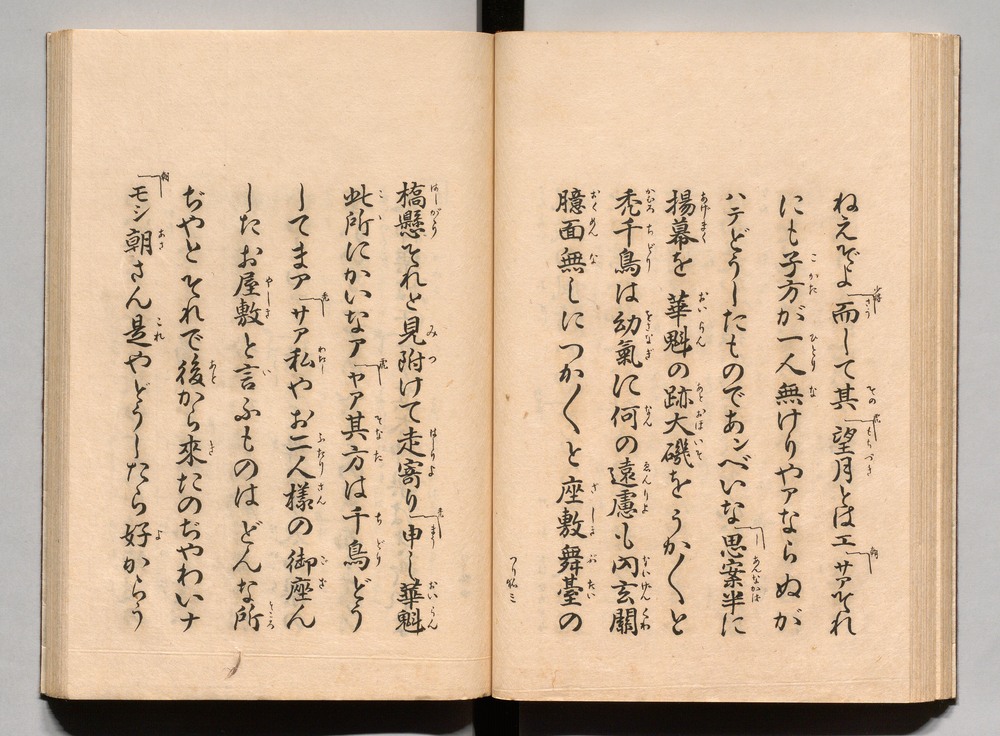 ねえぞよ而して其望月とはエサアそれ
にも子方が一人無けりやアならぬが
ハテどうしたものであンべいな思案半に
揚幕を華魁の跡大磯をうか〳〵と
禿千鳥は幼氣に何の遠慮も内玄關
臆面無しにつか〳〵と座敷舞臺の
橋懸それと見附けて走寄り申し華魁
此所にかいなアヤア其方は千鳥どう
してまアサア私やお二人樣の御座ん
したお屋敷と言ふものはどんな所
ぢやとそれで後から來たのぢやわいナ
モシ朝さん是やどうしたら好からう